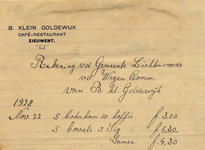 B. KLEIN GOLDEWIJK
CAFÉ-RESTAURANT
ZIEUWENT.
Rekening v/d Gemeente Lichtenvoorde
v/d Wegen Comm.
van B. Kl. Goldewijk
1928
Nov. 22 5 boterham 10 koffie f 3.00
5 borrels 3 Sig f 1.30
Samen f 4.30